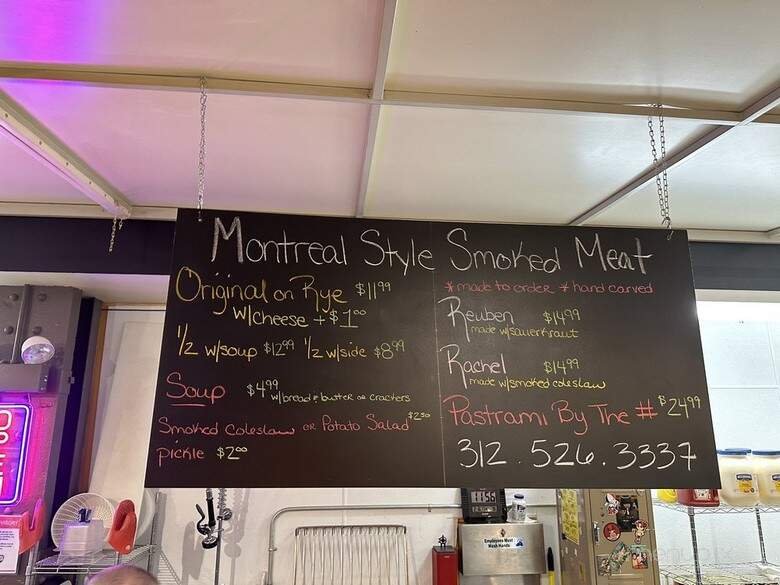 Montreal Style Smoked Meat
Original on Rye $11⁹⁹
w/cheese + $1⁰⁰
1/2 w/soup $12⁹⁹ 1/2 w/side $8⁹⁹
Soup $4⁹⁹ w/bread & butter or crackers
Smoked Coleslaw or Potato Salad $2⁵⁰
pickle $2⁰⁰
* made to order * hand carved
Reuben $14⁹⁹
made w/sauerkraut
Rachel $14⁹⁹
made w/smoked coleslaw
Pastrami By The # $24⁹⁹
312.526.3337
1155
Employees Must
Wash Hands